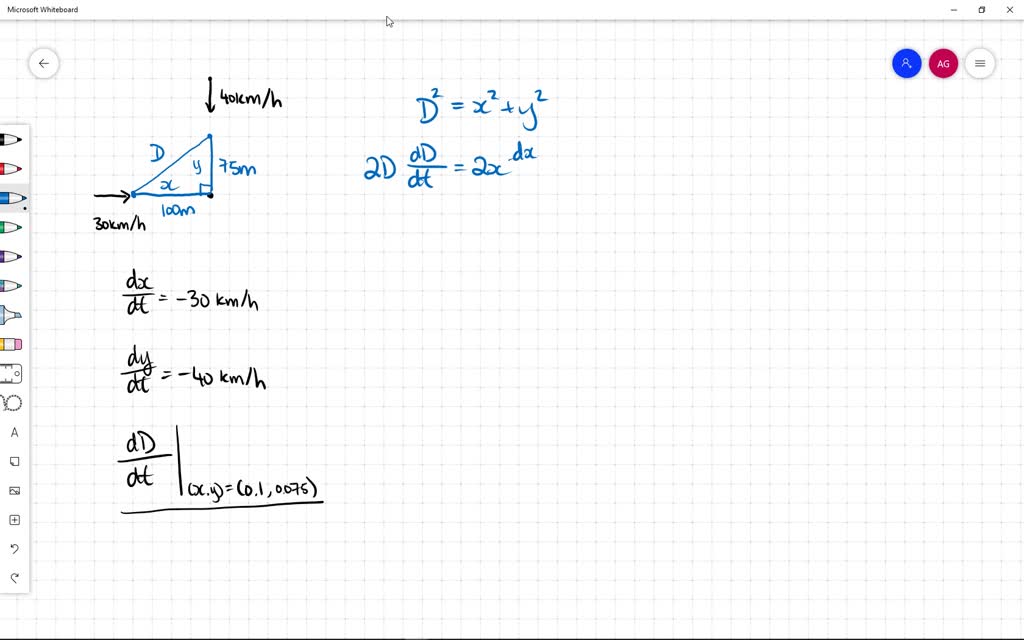 Microsoft Whiteboard
AG
40km/h
D² = x² + y²
D
y
75m
x
100m
30km/h
2D dD/dt = 2x dx
dx/dt = -30 km/h
dy/dt = -40 km/h
dD/dt |(x,y)=(0.1, 0.075)
A